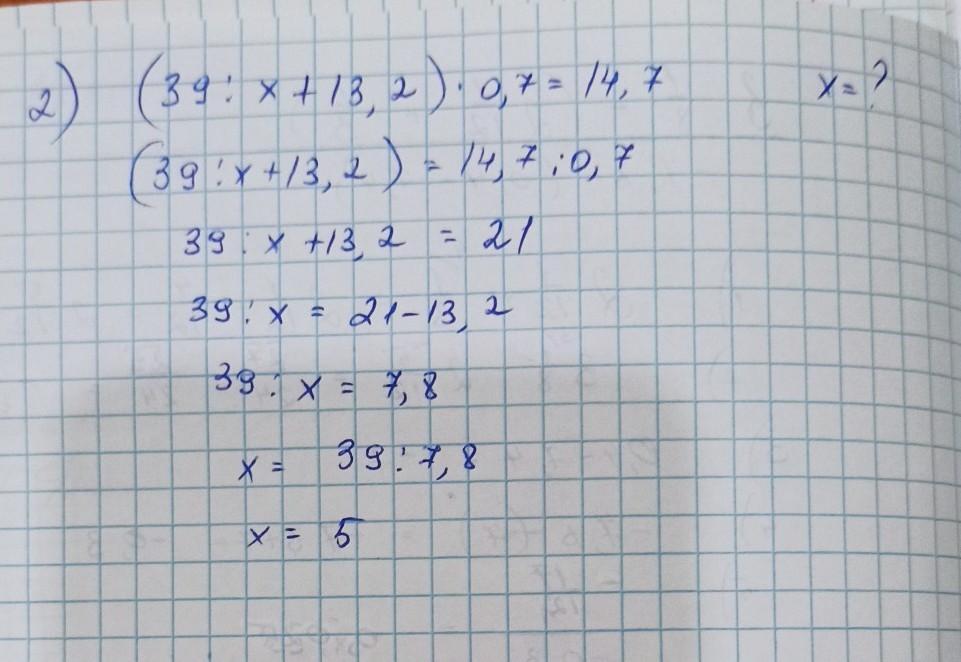 2) (39 : x + 13,2) · 0,7 = 14,7 x = ?
(39 : x + 13,2) = 14,7 : 0,7
39 : x + 13,2 = 21
39 : x = 21 - 13,2
39 : x = 7,8
x = 39 : 7,8
x = 5